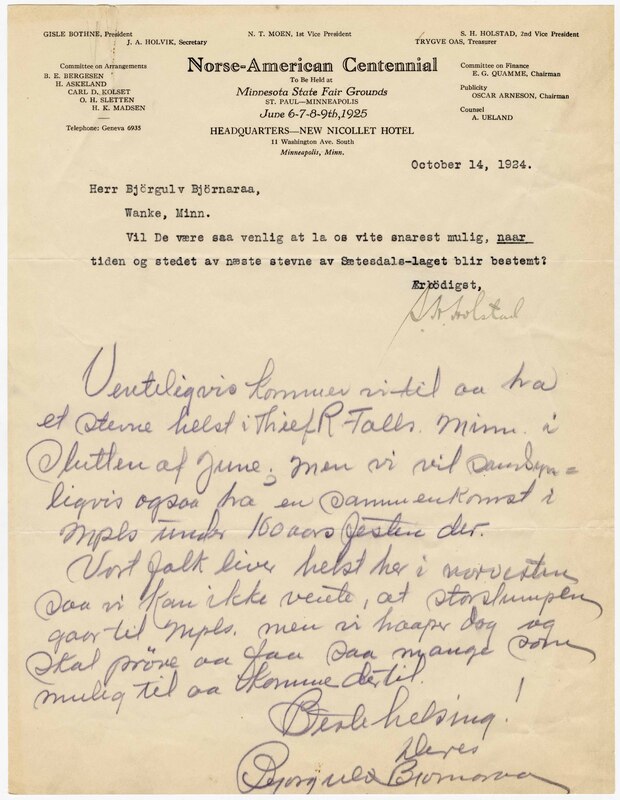 GISLE BOTHNE, President
J. A. HOLVIK, Secretary
N. T. MOEN, 1st Vice President
S. H. HOLSTAD, 2nd Vice President
TRYGVE OAS, Treasurer
Committee on Arrangements
B. E. BERGESEN
H. ASKELAND
CARL D. KOLSET
O. H. SLETTEN
H. K. MADSEN
Telephone: Geneva 6935
Norse-American Centennial
To Be Held at
Minnesota State Fair Grounds
ST. PAUL—MINNEAPOLIS
June 6-7-8-9th, 1925
HEADQUARTERS—NEW NICOLLET HOTEL
11 Washington Ave. South
Minneapolis, Minn.
Committee on Finance
E. G. QUAMME, Chairman
Publicity
OSCAR ARNESON, Chairman
Counsel
A. UELAND
October 14, 1924.
Herr Björgulv Björnaraa,
Wanke, Minn.
Vil De være saa venlig at la os vite snarest mulig, naar
tiden og stedet av næste stevne av Sætesdals-laget blir bestemt?
Ærbödigst,
S. H. Holstad
Venteligvis kommer vi til aa ha
et stevne helst i Thief R Falls. Minn. i
Slutten af June; men vi vil sandsyn=
ligvis ogsaa ha en sammenkomst i
Mpls under 100 aars festen der.
Vort folk liver helst her i norvesten
saa vi kan ikke vente, at storslumpen
gaar til Mpls. men vi haaper dog og
skal pröve aa faa saa mange som
mulig til aa komme dertil.
Beste helsing!
Deres
Bjorgulv Bjornaraa